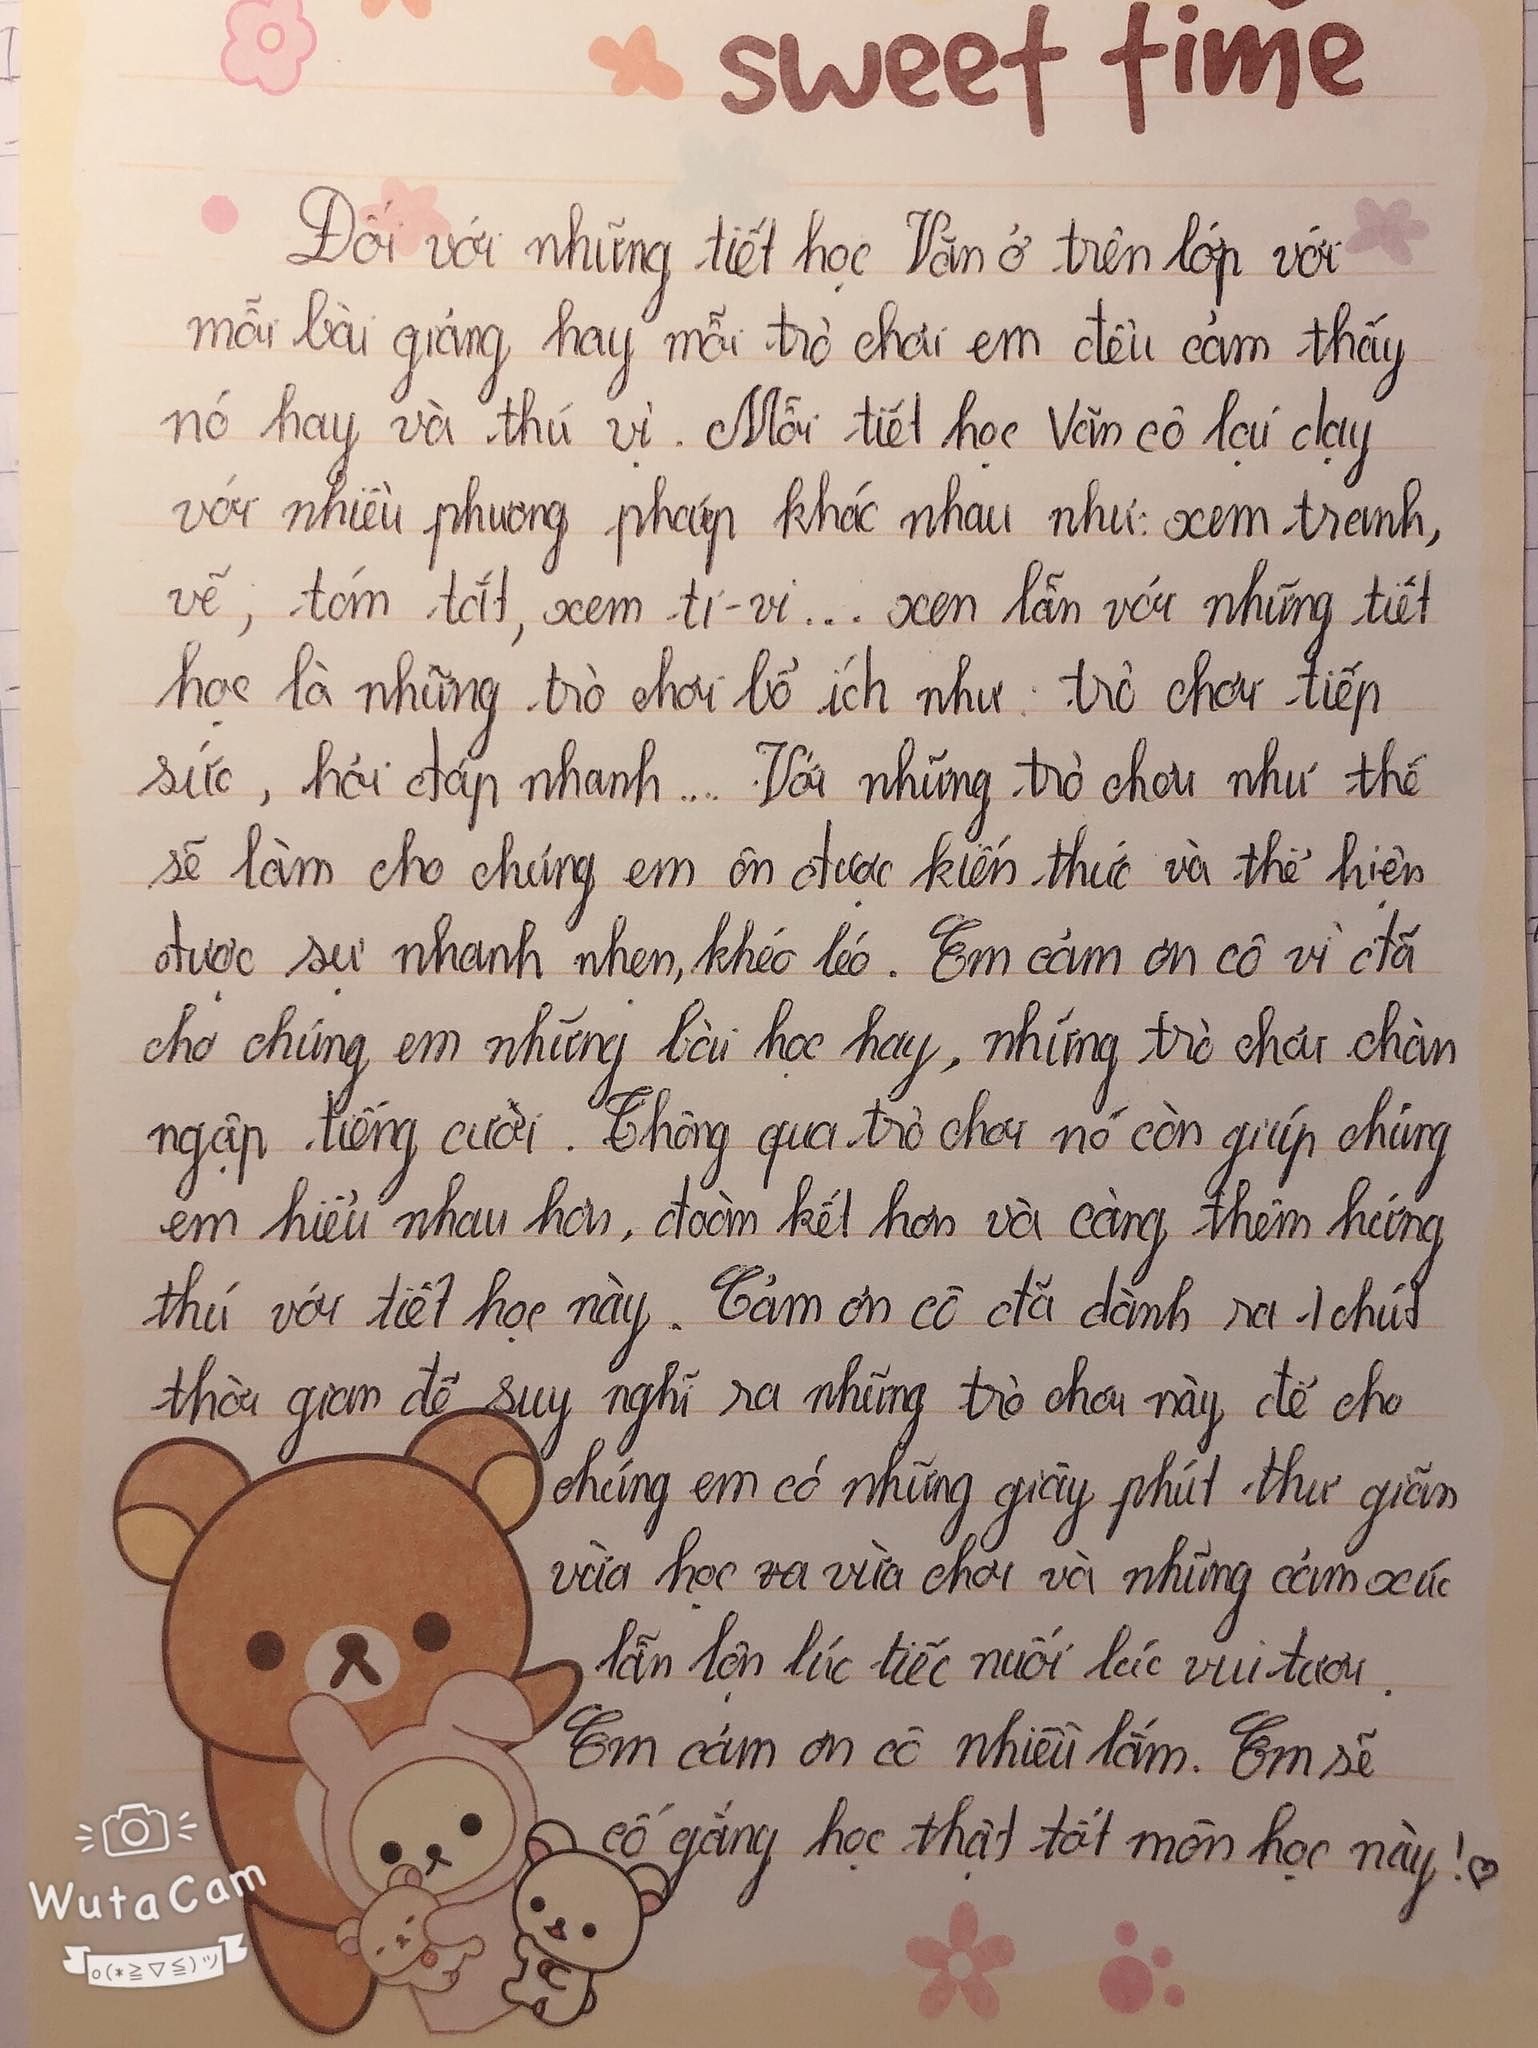 sweet time
Đối với những tiết học Văn ở trên lớp với
mỗi bài giảng hay mỗi trò chơi em đều cảm thấy
nó hay và thú vị. Mỗi tiết học Văn cô lại dạy
với nhiều phương pháp khác nhau như: xem tranh,
vẽ, tóm tắt, xem ti-vi... xen lẫn với những tiết
học là những trò chơi bổ ích như: trò chơi tiếp
sức, hỏi đáp nhanh... Với những trò chơi như thế
sẽ làm cho chúng em ôn được kiến thức và thể hiện
được sự nhanh nhẹn, khéo léo. Em cảm ơn cô vì đã
cho chúng em những bài học hay, những trò chơi chàn
ngập tiếng cười. Thông qua trò chơi nó còn giúp chúng
em hiểu nhau hơn, đoàn kết hơn và càng thêm hứng
thú với tiết học này. Cảm ơn cô đã dành ra 1 chút
thời gian để suy nghĩ ra những trò chơi này để cho
chúng em có những giây phút thư giãn
vừa học ra vừa chơi và những cảm xúc
lẫn lộn lúc tiếc nuối lúc vui tươi.
Em cảm ơn cô nhiều lắm. Em sẽ
cố gắng học thật tốt môn học này! ♡
WutaCam
o(*≧▽≦)ツ